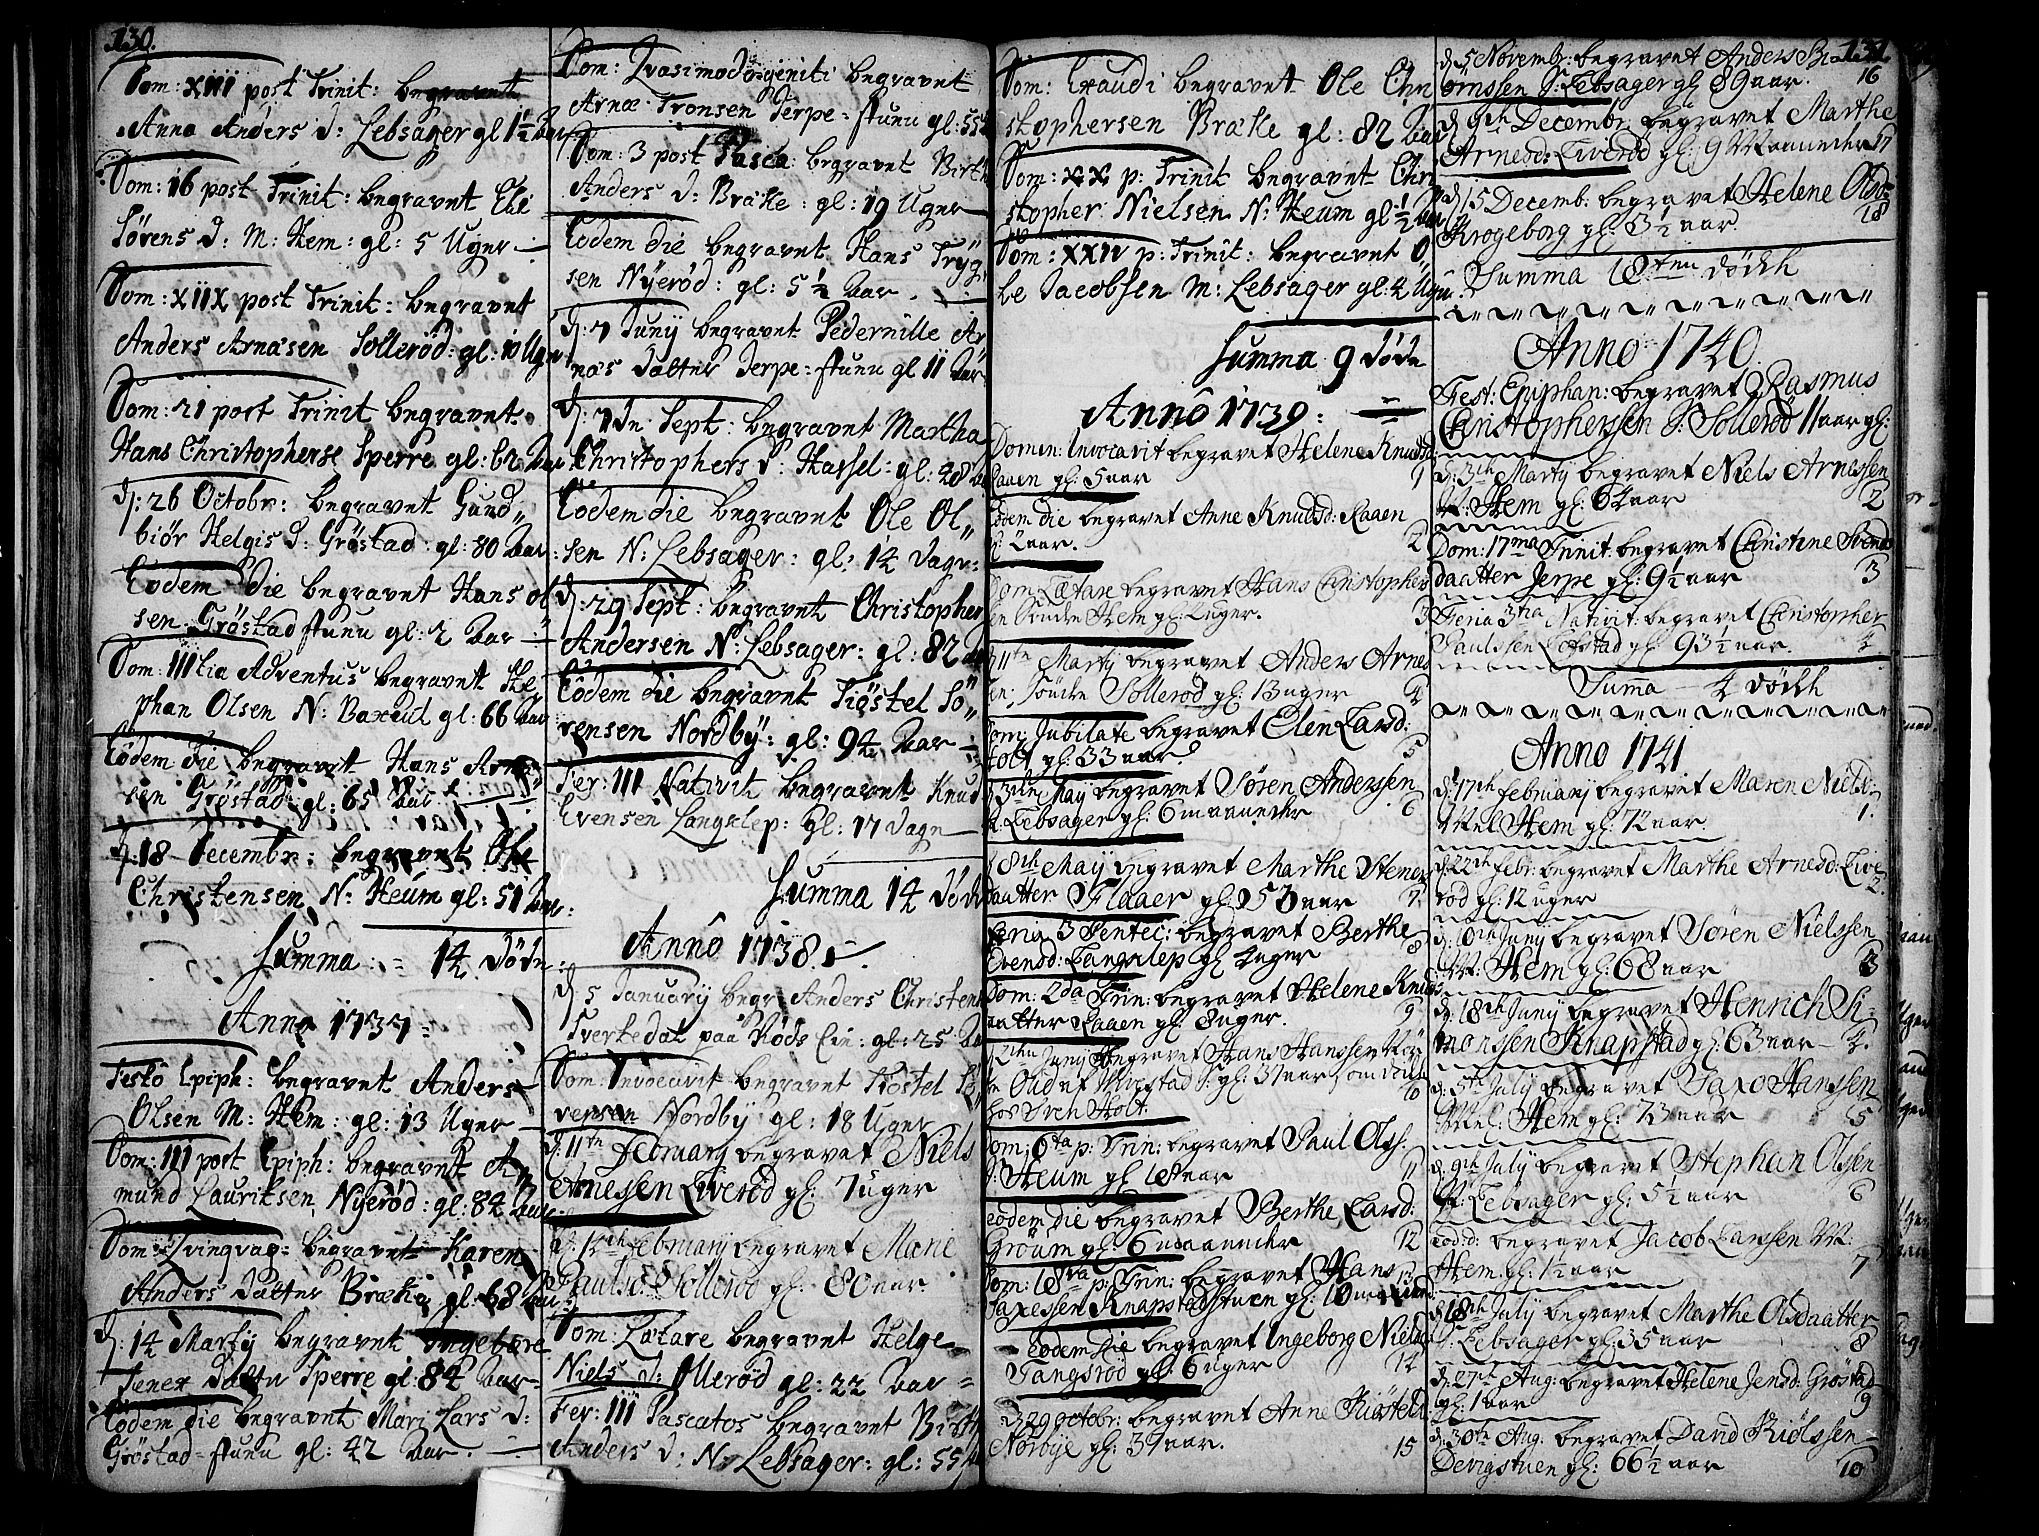 130.
Dom: XIII post Trinit: begravet
Anna Anders d: Lebsager gl 1½ Aar
Dom: 16 post Trinit: begravet Eli
Sörens d: M: Hem: gl: 5 Uger
Dom: XIIX post Trinit: begravet
Anders Arnæsen Sollerød: gl: 10 Uger
Dom: 21 post Trinit begravet
Hans Christophense Sperre gl: 62 Aar
d: 26 Octobr: begravet Gund„
biör Helgis d: Grøstad: gl: 80 Aar
Eodem die begravet Hans Ol
sen Grøstad stuen gl: 2 Aar
Dom: III tia Adventus begravet Ste
phan Olsen N: Baxeül gl: 66 Aar
Eodem die begravet Hans
sen Grøstad: gl: 65 Aar
d: 18 Decembr: begravet Ole
Christensen N: Heum gl: 51 Aar
Summa = 14 Döde
Anno 1737
Festo Epiph: begravet Anders
Olsen M: Hem: gl: 13 Uger
Dom: III post Epiph: begravet Am
mund Lauriksen, Nyerød: gl: 84 Aar
Dom: Qvinqvag: begravet Karen
Anders Datter Bræke gl: 68 Aar
d: 14 Martij begravet Ingebore
Datter Sperre gl: 84 Aar
Eodem die begravet Mari Lars d:
Grøstad-stuen gl: 42 Aar
Dom: Qvasimodogeniti begravet
Arnæ Tronsen Jerpe-stuen gl: 55
Dom: 3 post Pasca begravet Birth
Anders d: Bræke: gl: 19 Uger
Eodem die begravet Hans Tryg
sen Nyerød: gl: 5½ Aar
d: 7 Junij begravet Pedernille Ar
næs datter Jerpe-stuen gl 11 Aar
d: 7de Sept: begravet Martha
Christophers d: Hassel: gl: 48 Aar
Eodem die begravet Ole Ol„
sen N: Lebsager: gl: 14 Dage
d: 29 Sept: begravet Christopher
Andersen N: Lebsager: gl: 82
Eodem die begravet Kiöstel Sö„
rensen Nordbÿ: gl: 94 Aar
Fer: III Nativit begravet Knud
Evensen Langslep: gl: 17 Dage
Summa 14 Döde
Anno 1738
d: 5 Januarij begr: Anders Christens
Sverkedal paa Røds Eie: gl: 25 Aar
Dom: Invocavit begravet Kiöstel Sö„
rensen Nordbÿ gl: 18 Uger
d: 11te February begravet Niels
Arnessen Liverød gl: 7 uger
d: 14de February begravet Marie
Paulsd: S: Sollerød gl: 80 aar.
Dom: Lætare begravet Helge
Niels d: Ullerød gl: 22 Aar
Fer: III Pascatos begravet Birth
Anders d: N: Lebsager: gl: 55
Dom: Exaudi begravet Ole Chri
stophersen Bræke gl: 82 Aar
Dom: XX p: Trinit begravet Chri
stopher Nielsen N: Heum gl ½ Aar
Dom: XXIV p: Trinit: begravet O
le Jacobsen M: Lebsager gl: 4 Uger
Summa 9 döde
Anno 1739:
Domin: Invocavit begravet Helene Knudsd:
Raaen gl: 5 aar 1
Eodem die begravet Anne Knudsd: Raaen
gl: 2 aar. 2
Dom: Lætare begravet Hans Christopher
sen Søndre Hem gl: 4 uger. 3
d: 11te Martij begravet Anders Arnes
sen: Søndre Sollerød gl: 13 uger 4
Dom: Jubilate begravet Elen Larsd:
Holt gl: 33 aar. 5
d: 3die Maij begravet Søren Anderssen
Lebsager gl: 6 maaneder 6
d: 8de Maij begravet Marthe Stener
daatter Flaaer gl: 53 aar 7
Feria 3 Pentec: begravet Berthe 8
Evensd: Langslep gl 4 uger
Dom: 2da Trin: begravet Helene Knuds
datter Raaen gl: 8 uger. 9
Junij begravet Hans Hanssen
gl: 37 aar, som döde
hos Sven Holt. 10
Dom: 6ta p: Trin: begravet Paul Olss:
Heum gl 18 aar 11
eodem die begravet Berthe Larsd:
Grøüm gl: 6 maaneder 12
Dom: 18va p: Trin: begravet Hans 13
Saxessen Knapstadstuen gl: 10 maaned:
Eodem die begravet Ingeborg Nielsd
Tangsrød gl: 6 uger 14
d: 29 Octobr: begravet Anne Kiøstelsd
Norbye gl: 37 aar. 15
131
d: 5 Novembr: begravet Anders Bi
ørnssen S: Lebsager gl 89 aar. 16
d: 9de Decembr: begravet Marthe
Arnesd: Liverød gl: 9 Maaneder 17
d: 15 Decemb: begravet Helene Olsd:
Krogeborg gl: 3½ aar. 18
Summa 18ten dödh
Anno 1740.
Fest: Epiphan: begravet Rasmus
Christophersen S: Sollerød 11 aar gl:
d: 3de Martij begravet Niels Arnessen
N: Hem gl: 64 aar 2
Dom: 17ma Trinit: begravet Christine Svends
daatter Jerpe gl: 9½ aar 3
Feria 3tia Nativit: begravet Christopher
Paulssen Løfstad gl: 93½ aar. 4
Summa — 4 dödh
Anno 1741
d: 17de February begravet Maren Nielsd:
Mel: Hem gl: 72 aar. 1.
d: 22de febr: begravet Marthe Arnesd: Live
rød gl: 12 uger 2.
d: 10de Junij begravet Søren Nielssen
M: Hem gl: 68 aar 3
d: 18de Junij begravet Henrich Si:
monssen Knapstad gl: 63 aar 4.
d: 5te Julij begravet Saxo Hanssen
Mel: Hem gl: 73 aar 5
d: 9de Julij begravet Stephan Olssen
N: Lebsager gl: 5½ aar 6
Eod: d: begravet Jacob Larssen M:
Hem gl: 1½ aar 7
d: 18de Julij begravet Marthe Olsdaatter
Lebsager gl: 35 aar 8
d: 27de Aug: begravet Helene Jensd: Grøstad
gl: 1 aar 9
d: 30te Aug: begravet David Kiølssen
Dengstuen gl: 66½ aar 10